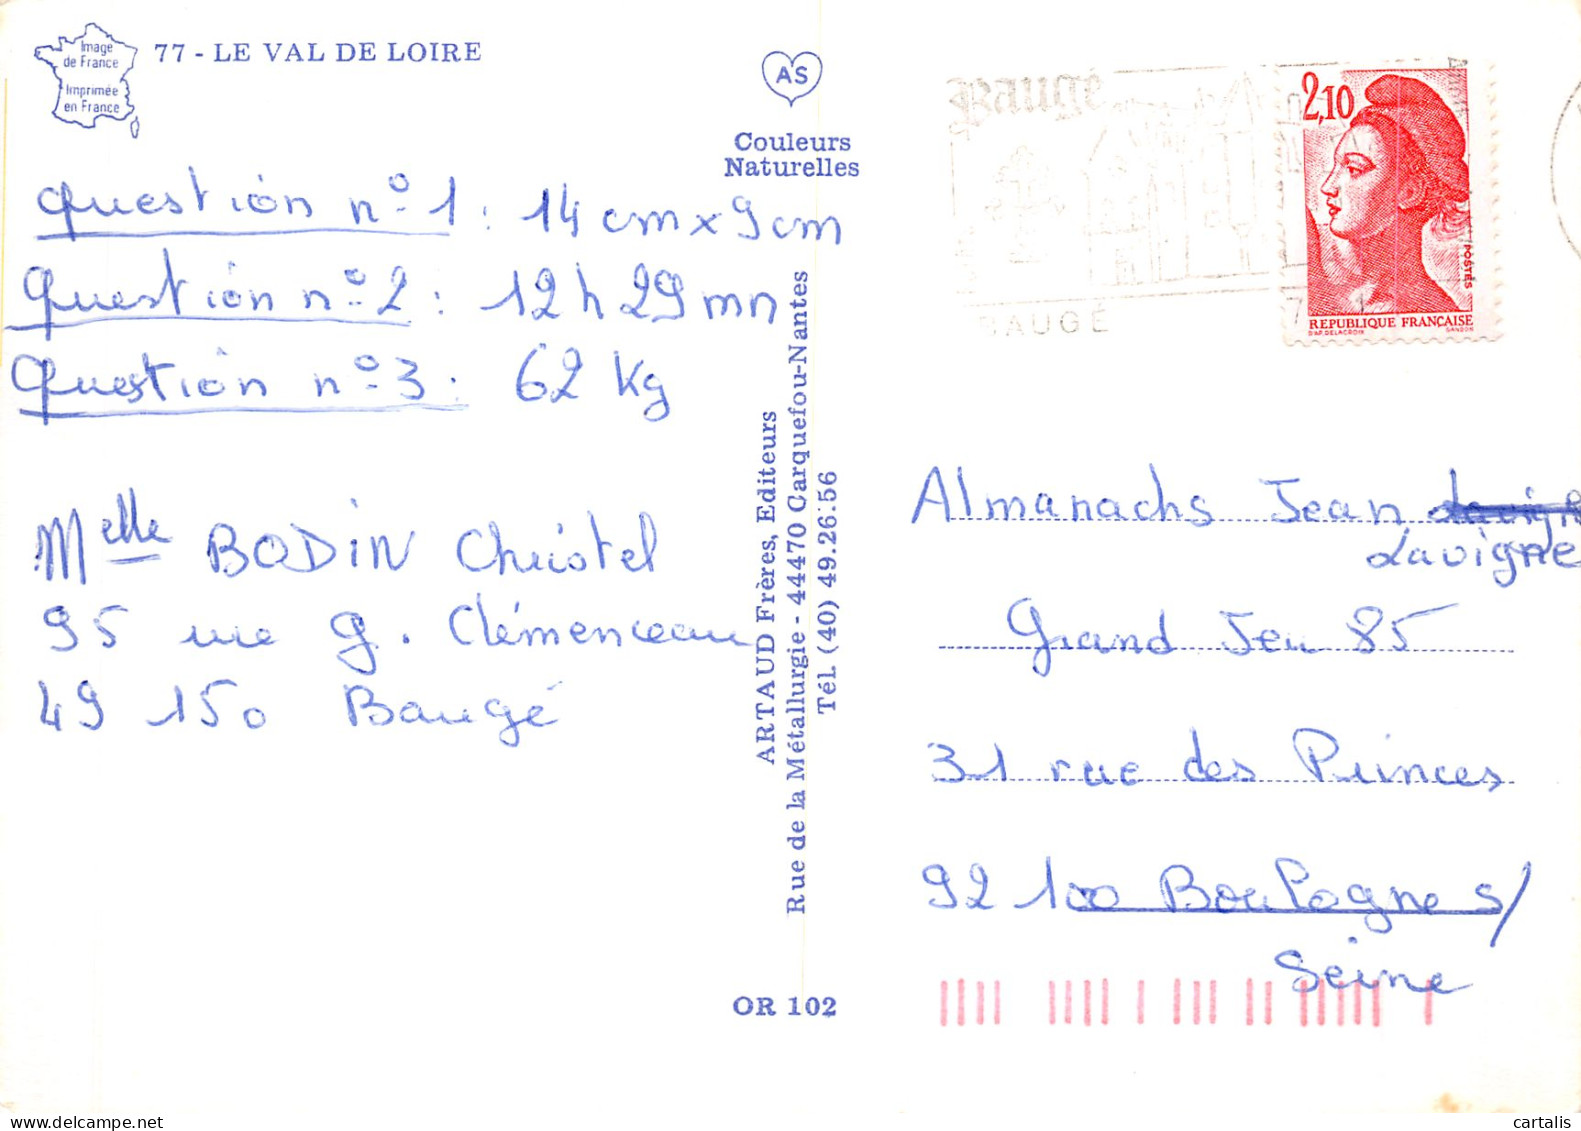 Image
de France
Imprimée
en France
77 - LE VAL DE LOIRE
AS
Couleurs
Naturelles
Question n° 1 : 14 cm x 9 cm
Question n° 2 : 12 h 29 mn
Question n° 3 : 62 Kg
Melle BODIN Christel
95 rue G. Clémenceau
49 150 Baugé
ARTAUD Frères, Editeurs
Rue de la Métallurgie - 44470 Carquefou-Nantes
Tél. (40) 49.26.56
OR 102
Baugé
BAUGÉ
2,10
POSTES
REPUBLIQUE FRANÇAISE
D'AP. DELACROIX GANDON
Almanachs Jean
Lavigne
Grand Jeu 85
31 rue des Princes
92 100 Boulogne s/
Seine
cartalis